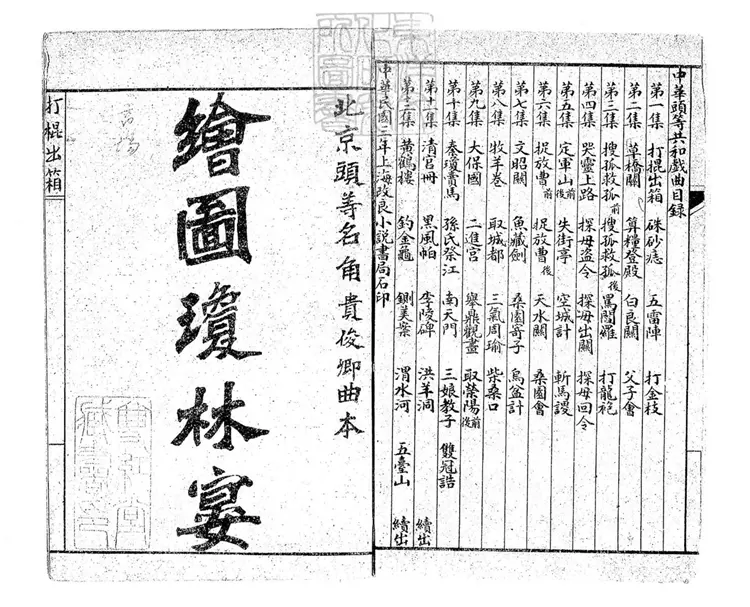 中華頭等共和戲曲目錄
第一集 打棍出箱 硃砂痣 五雷陣 打金枝
第二集 草橋關 算糧登殿 白良關 父子會
第三集 搜孤救孤前 搜孤救孤後 罵閻羅 打龍袍
第四集 哭靈上路 探母盜令 探母出關 探母回令
第五集 定軍山前後 失街亭 空城計 斬馬謖
第六集 捉放曹前 捉放曹後 天水關 桑園會
第七集 文昭關 魚藏劍 桑園寄子 烏盆計
第八集 牧羊卷 取城都 三氣周瑜 柴桑口
第九集 大保國 二進宮 舉鼎觀畫 取滎陽前後
第十集 秦瓊賣馬 孫氏祭江 南天門 三娘教子 雙冠誥
第十一集 清官冊 黑風帕 李陵碑 洪羊洞 續出
第十二集 黃鶴樓 釣金龜 鍘美案 渭水河 五臺山 續出
中華民國三年上海改良小說書局石印
北京頭等名角貴俊卿曲本
繪圖瓊林宴
打棍出箱